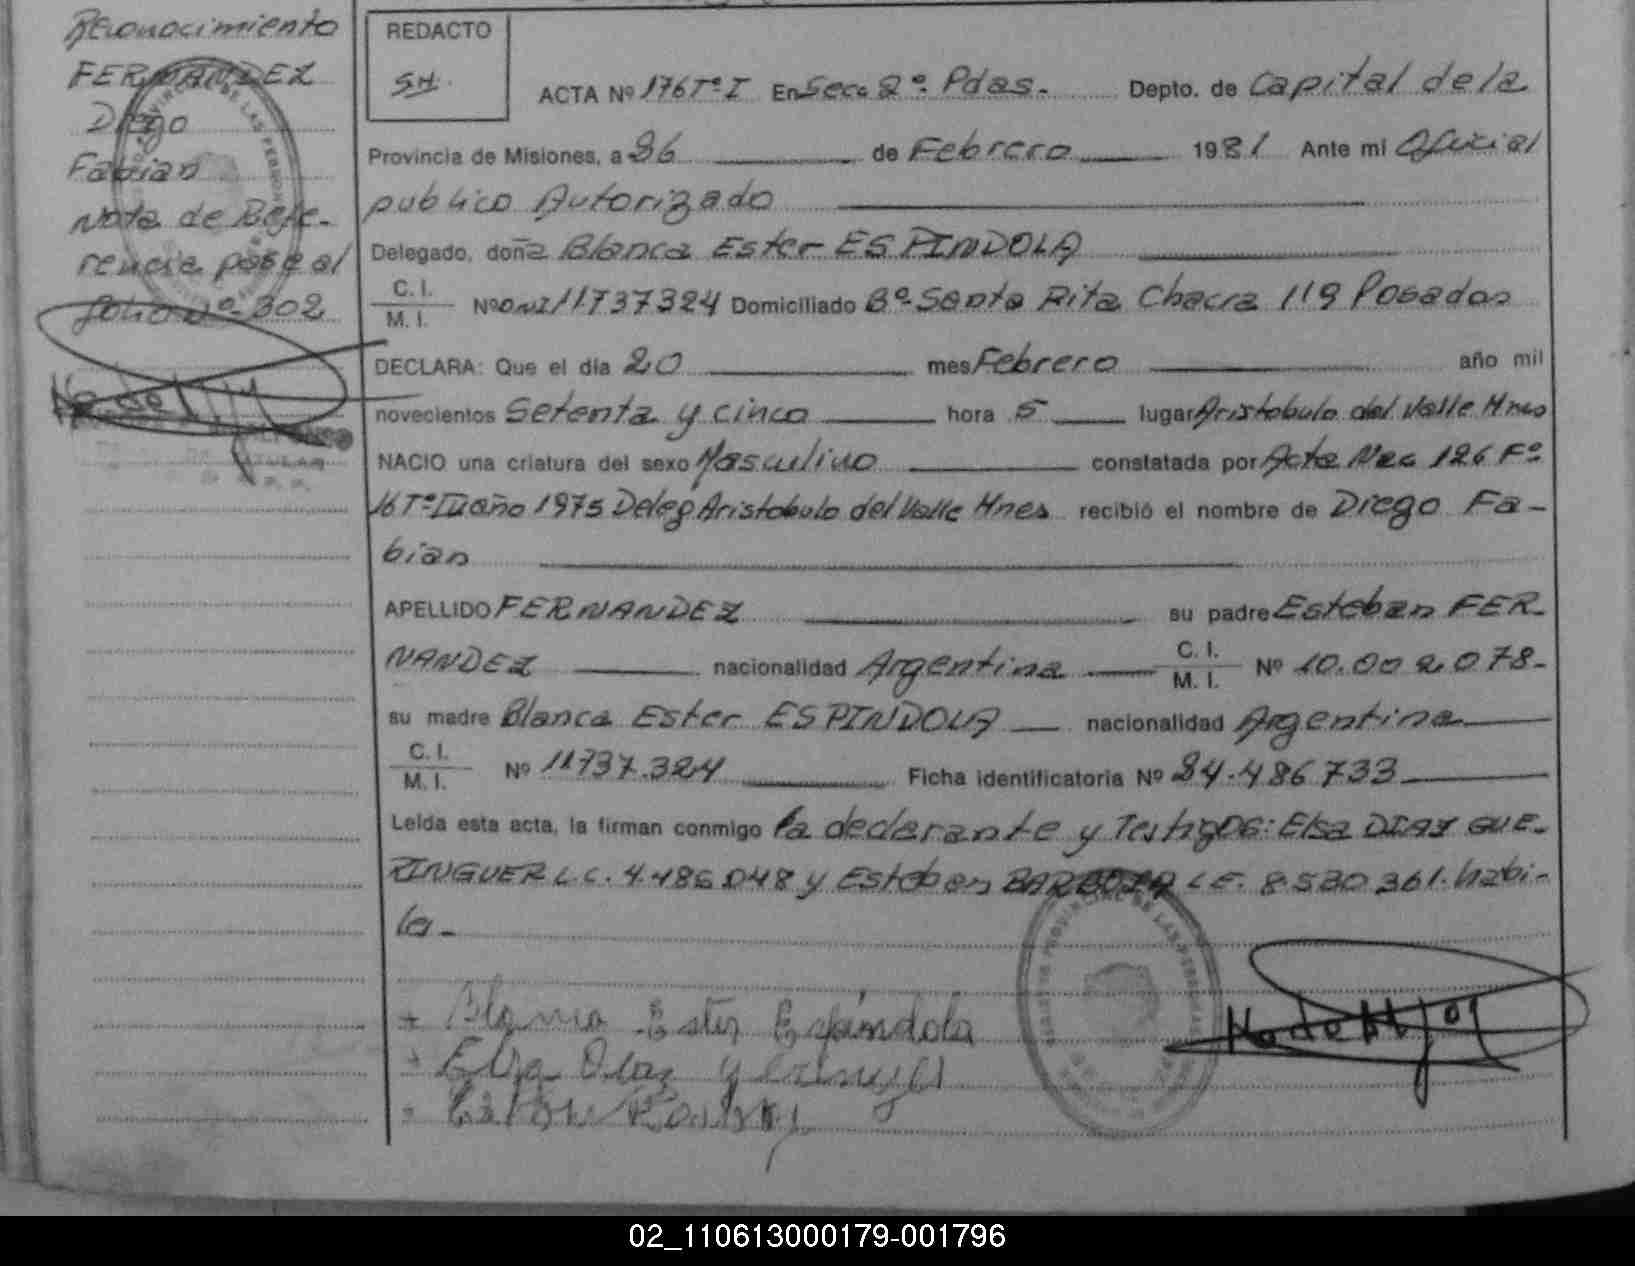 Reconocimiento
FERNANDEZ
Diego
Fabian
Nota de Refe-
rencia pase al
folio Nº 302
REDACTO
SH.
ACTA Nº 176 Tº I En Secc 2º. Pdas. Depto. de Capital de la
Provincia de Misiones, a 26 de Febrero 1981 Ante mi Oficial
publico Autorizado
Delegado, doña Blanca Ester ESPINDOLA
C. I.
M. I. Nº DNI 11737324 Domiciliado Bº Santa Rita Chacra 119 Posadas
DECLARA: Que el dia 20 mes Febrero año mil
novecientos Setenta y cinco hora 5 lugar Aristobulo del Valle Mnes
NACIO una criatura del sexo Masculino constatada por Acta Nac 126 Fº
16 Tº II año 1975 Deleg Aristobulo del Valle Mnes recibió el nombre de Diego Fa-
bian
APELLIDO FERNANDEZ su padre Esteban FER-
NANDEZ nacionalidad Argentina C. I.
M. I. Nº 10.002.078-
su madre Blanca Ester ESPINDOLA nacionalidad Argentina
C. I.
M. I. Nº 11737.324 Ficha identificatoria Nº 24.486733
Leída esta acta, la firman conmigo la declarante y Testigos: Elsa DIAZ GUE-
RINGUER L.C. 4.486.048 y Esteban BARBOZA L.E. 8.530.361. habi-
les-
Blanca Ester Espíndola
Elsa Diaz
02_110613000179-001796